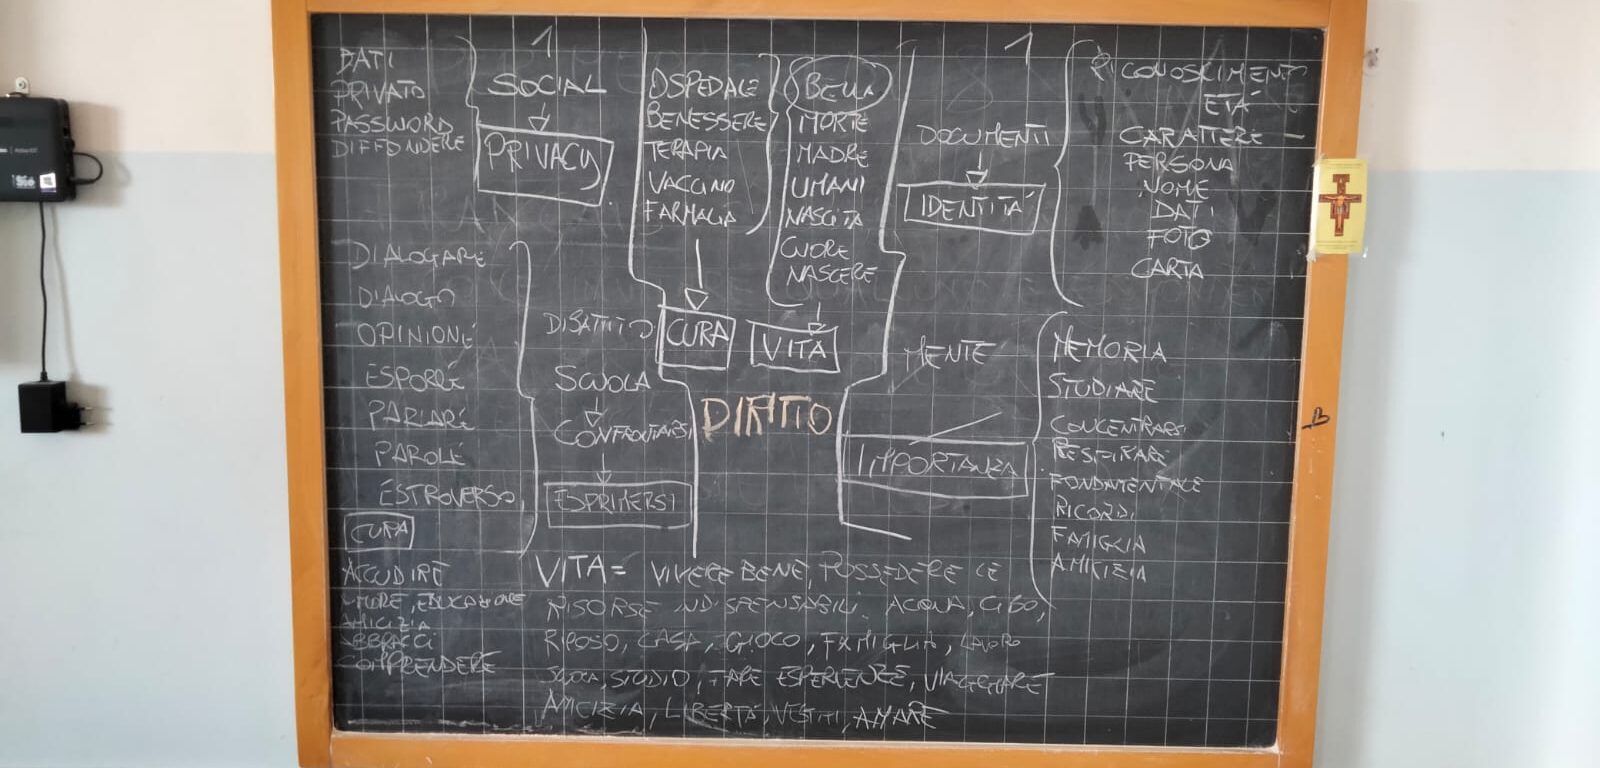 DATI
PRIVATO
PASSWORD
DIFFONDERE
1
SOCIAL
PRIVACY
OSPEDALE
BENESSERE
TERAPIA
VACCINO
FARMACIA
CURA
BELLA
MORTE
MADRE
UMANI
NASCITA
CUORE
NASCERE
VITA
1
DOCUMENTI
IDENTITÀ
RICONOSCIMENTO
ETÀ
CARATTERE
PERSONA
NOME
DATI
FOTO
CARTA
DIALOGARE
DIALOGO
OPINIONE
ESPORRE
PARLARE
PAROLE
ESTROVERSO
DIBATTITO
SCUOLA
CONFRONTARSI
ESPRIMERSI
DIRITTO
MENTE
IMPORTANZA
MEMORIA
STUDIARE
CONCENTRARSI
RESPIRARE
FONDAMENTALE
RICORDI
FAMIGLIA
AMICIZIA
CURA
ACCUDIRE
AMORE, EDUCAZIONE
AMICIZIA
ABBRACCI
COMPRENDERE
VITA = VIVERE BENE, POSSEDERE LE
RISORSE INDISPENSABILI, ACQUA, CIBO,
RIPOSO, CASA, GIOCO, FAMIGLIA, LAVORO
SCUOLA, STUDIO, FARE ESPERIENZE, VIAGGIARE
AMICIZIA, LIBERTÀ, VESTITI, AMARE
B